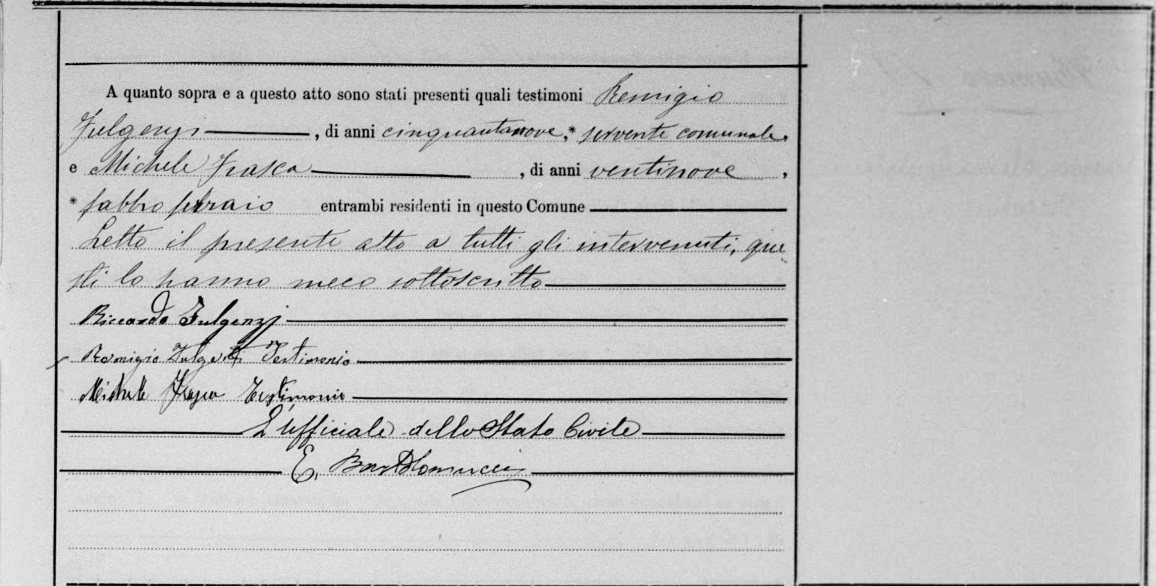 A quanto sopra e a questo atto sono stati presenti quali testimoni Remigio
Fulgenzi, di anni cinquantanove, * servente comunale
e Michele Frasca, di anni ventinove,
* fabbro ferraio entrambi residenti in questo Comune
Letto il presente atto a tutti gli intervenuti, que
sti lo hanno meco sottoscritto
Riccardo Fulgenzj
Remigio Fulgenzi Testimonio
Michele Frasca Testimonio
L'Ufficiale dello Stato Civile
E. Bartolomucci